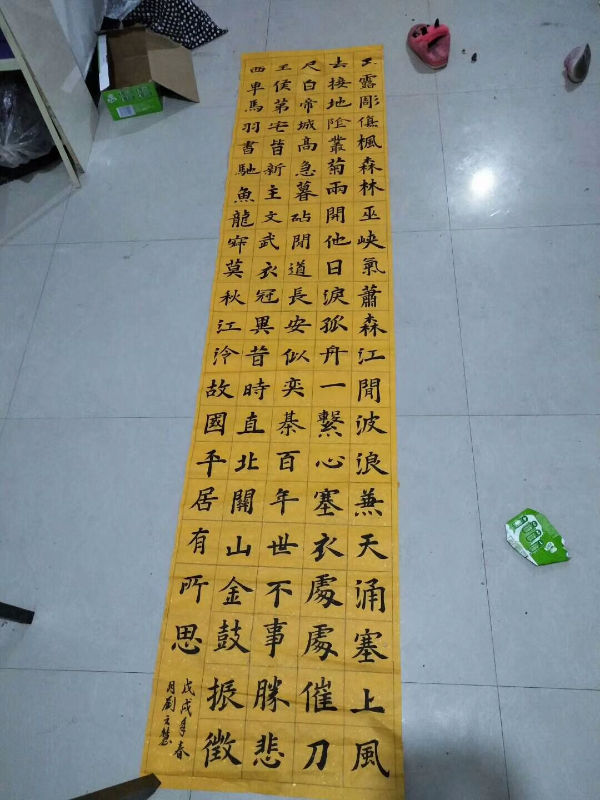 玉露彫傷楓森林巫峽氣蕭森江間波浪兼天涌塞上風
去接地陰叢菊兩開他日淚孤舟一繫心塞衣處處催刀
尺白帝城高急暮砧聞道長安似奕棊百年世不事勝悲
王侯第宅皆新主文武衣冠異昔時直北關山金鼓振徵
西車馬羽書馳魚龍寂莫秋江冷故國平居有所思
戊戌年春
月劉